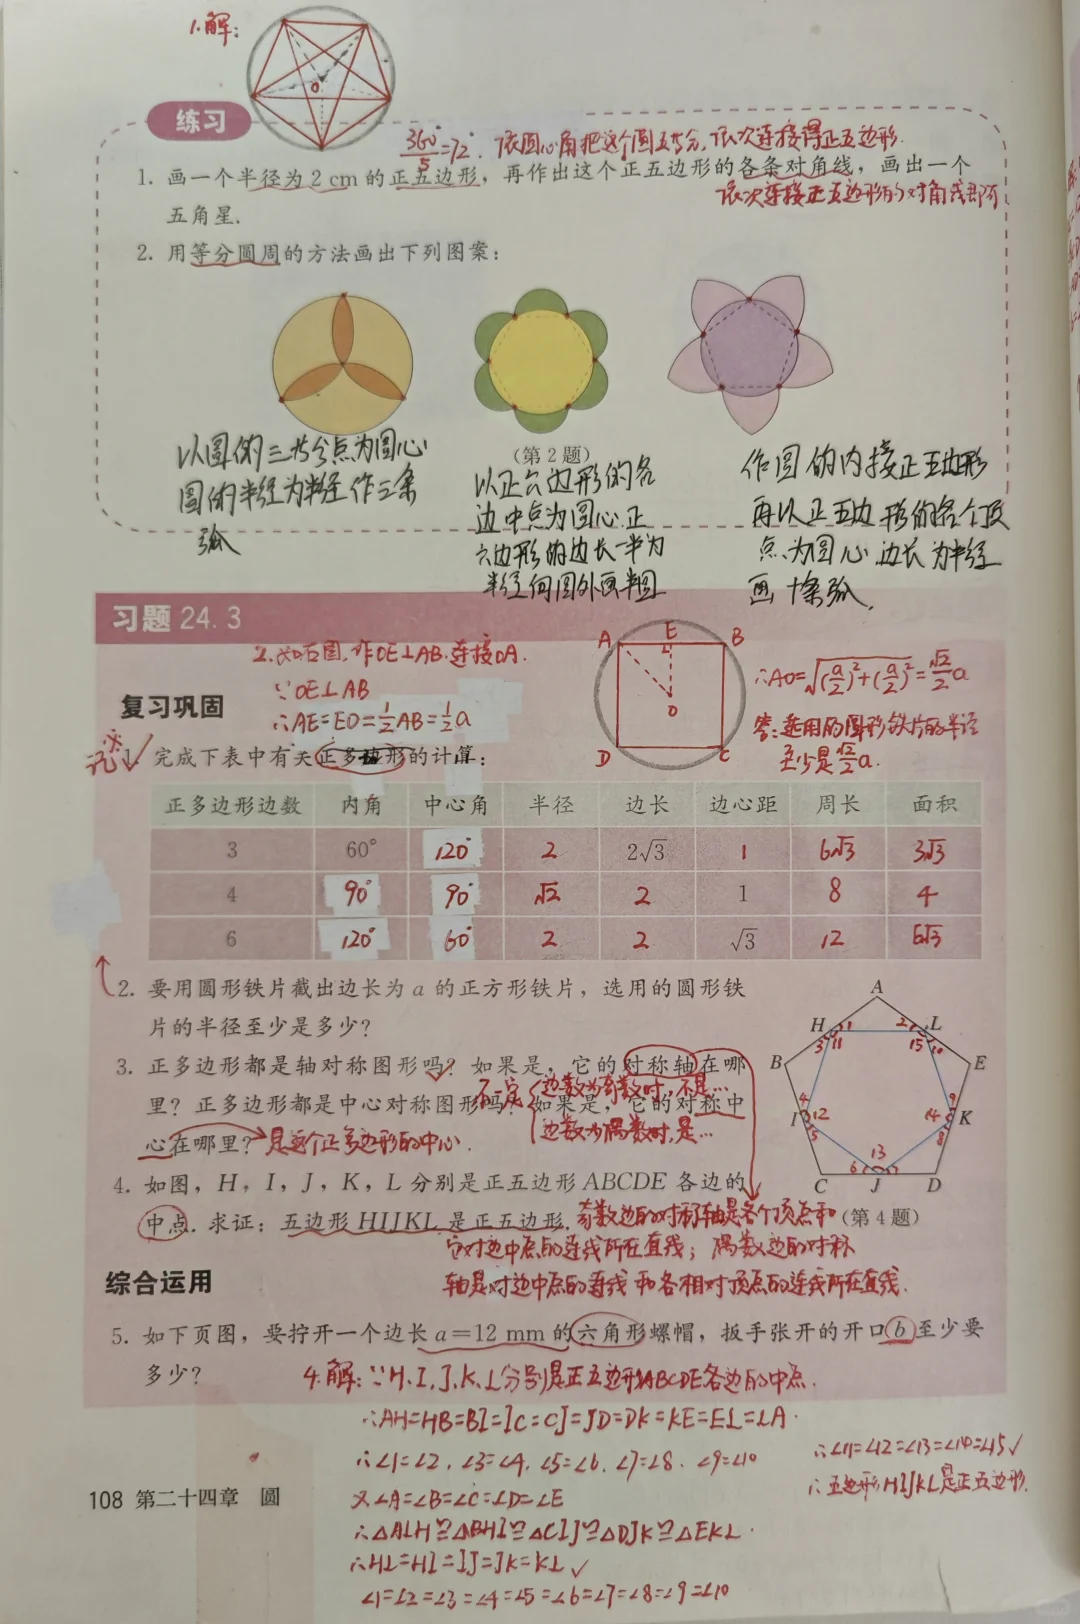 1.解:
O
练习
360°/5=72°. 依圆心角把这个圆五等分,依次连接得正五边形.
1. 画一个半径为2 cm的正五边形，再作出这个正五边形的各条对角线，画出一个
依次连接正五边形的对角线即可
五角星.
2. 用等分圆周的方法画出下列图案：
(第2题)
以圆的三等分点为圆心
圆的半径为半径作三条
弧
以正六边形的各
边中点为圆心.正
六边形的边长一半为
半径向圆外画半圆
作圆的内接正五边形
再以正五边形的各个顶
点为圆心 边长为半径
画十条弧.
习题 24.3
2.如右图,作OE⊥AB.连接OA.
∵OE⊥AB
∴AE=EO=½AB=½a
A E B
O
D C
∴AO=√((a/2)²+(a/2)²)=√2/2 a
答:选用的圆形铁片的半径
至少是√2/2 a.
复习巩固
记 ※
1. 完成下表中有关正多边形的计算：
正多边形边数 内角 中心角 半径 边长 边心距 周长 面积
3 60° 120° 2 2√3 1 6√3 3√3
4 90° 90° √2 2 1 8 4
6 120° 60° 2 2 √3 12 6√3
2. 要用圆形铁片截出边长为a的正方形铁片，选用的圆形铁
片的半径至少是多少？
3. 正多边形都是轴对称图形吗？如果是，它的对称轴在哪
里？正多边形都是中心对称图形吗？如果是，它的对称中
心在哪里？
不一定 边数为奇数时,不是…
边数为偶数时,是…
是这个正多边形的中心.
4. 如图，H，I，J，K，L分别是正五边形ABCDE各边的
中点. 求证：五边形HIJKL是正五边形.
奇数边的对称轴是各个顶点和
它对边中点的连线所在直线；偶数边的对称
轴是对边中点的连线和各相对顶点的连线所在直线.
A
H 1 2 L
3 11 15 10
B E
4 9
I 12 14 K
5 8
13
6
C J D
(第4题)
综合运用
5. 如下页图，要拧开一个边长a=12 mm的六角形螺帽，扳手张开的开口b至少要
多少？
4.解:∵H、I、J、K、L分别是正五边形ABCDE各边的中点.
∴AH=HB=BI=IC=CJ=JD=DK=KE=EL=LA.
∴∠1=∠2, ∠3=∠4, ∠5=∠6, ∠7=∠8, ∠9=∠10
又∠A=∠B=∠C=∠D=∠E
∴△ALH≌△BHI≌△CIJ≌△DJK≌△EKL.
∴HL=HI=IJ=JK=KL ✓
∠1=∠2=∠3=∠4=∠5=∠6=∠7=∠8=∠9=∠10
∴∠11=∠12=∠13=∠14=∠15 ✓
∴五边形HIJKL是正五边形.
108 第二十四章 圆